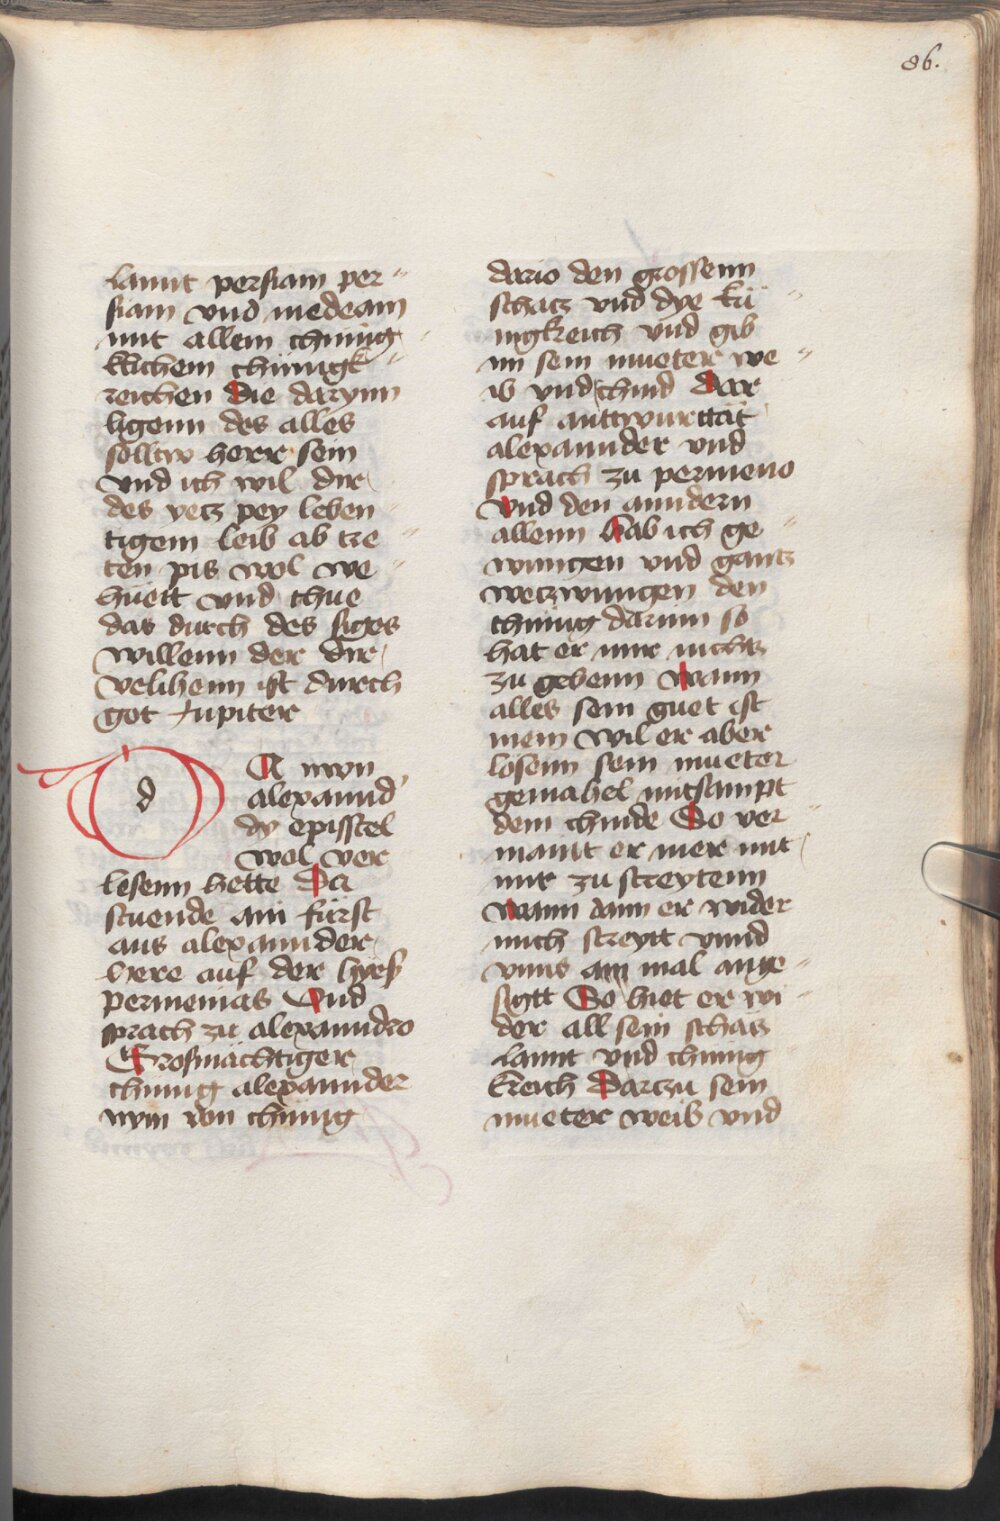 86.
lannt persiam per"
siam vnd medeam
mit allem chünig
klichem chünigk"
reichen Die darynn
ligenn des alles
solltw herr sein
Vnd ich wil dir
des yecz pey leben"
tigem leib ab tre"
ten pis wol we"
huett vnd thue
das durch des siges
willenn der dir
velihenn ist durch
got Jupiter
d
A nwn
alexannd'
dy episstel
wol ver
lesenn hette Da
stuende ain fürst
aus alexannder
here auf der hyes
permenias Vnd
sprach zu alexanndro
Grosmächtiger
chünig alexannder
nym von chünig
dario den grossenn
schacz vnd dye kü"
nigkreich vnd gib
im sein mueter we"
ib vnd chind Dar
auf anttwurttät
alexannder vnd
sprach zu permeno
Vnd den anndern
allenn Hab ich ge"
wungen vnd gancz
weczwungen den
chünig darum so
hat er mir nichts
zu gebenn Wann
alles sein guet ist
mein Wil er aber
losenn sein mueter
gemahel mitsampt
dem chinde So ver
maint er mer mit
mir zu streytenn
Wann dann er wider
mich streytt vnnd
vnns ain mal ange"
sigtt So hiet er wi"
der all sein schäcz
lannt vnd chünig
kreich Darczu sein
mueter weib vnd